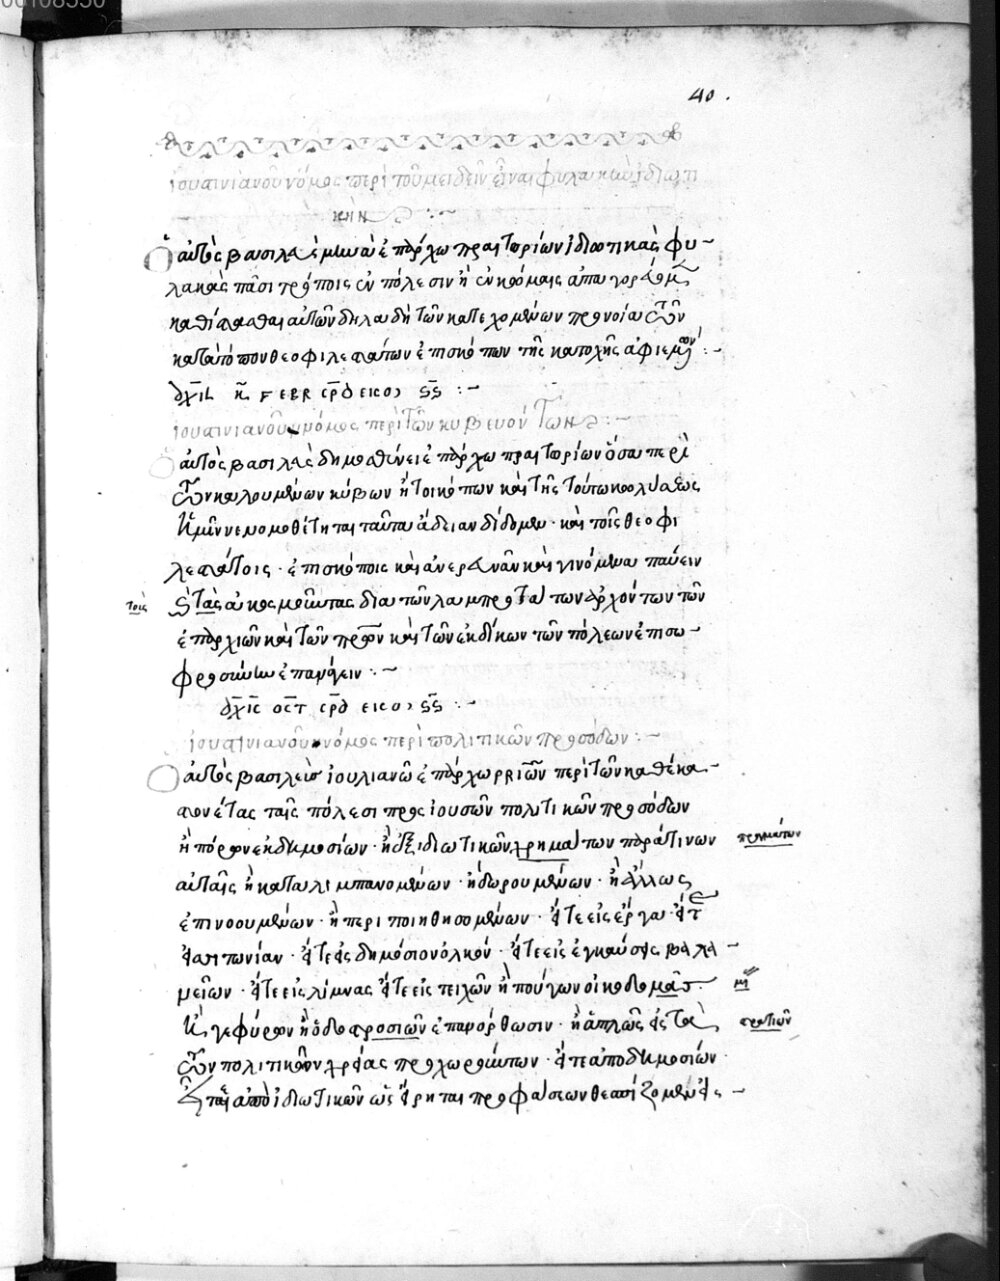 00108550
40.
ἰουστινιανοῦ νόμος περὶ τοῦ μὴ δεῖν εἶναι φυλακὴν ἰδιωτι
κήν :~
Ὁ αὐτὸς βασιλεὺς μηνᾶ ἐπάρχω πραιτωρίων ἰδιωτικὰς φυ-
λακὰς πᾶσι τρόποις ἐν πόλεσιν ἢ ἐν κώμαις ἀπαγορεύομεν
καθίστασθαι αὐτῶν δηλαδὴ τῶν κατεχομένων προνοία τῶν
κατὰ τόπον θεοφιλεστάτων ἐπισκόπων τῆς κατοχῆς ἀφιεμένων :-
FEBR
ἰουστινιανοῦ νόμος περὶ τῶν κυβευόντων :~
Ὁ αὐτὸς βασιλεὺς δημοσθένει ἐπάρχω πραιτωρίων ὅσα περὶ
τῶν καλουμένων κύβων ἤτοι κόττων καὶ τῆς τούτων κωλύσεως
ἡμῖν νενομοθέτηται ταῦτα ἄδειαν δίδομεν · καὶ τοῖς θεοφι
λεστάτοις · ἐπισκόποις καὶ ἀνερευνᾶν καὶ γινόμενα παύειν
τοῖς
τὰς ἀκοσμοῦντας διὰ τῶν λαμπροτάτων ἀρχόντων τῶν
ἐπαρχιῶν καὶ τῶν πρῶν καὶ τῶν ἐκδίκων τῶν πόλεων ἐπι σω-
φροσύνην ἐπανάγειν :~
ἰουστινιανοῦ νόμος περὶ πολιτικῶν προσόδων :-
Ὁ αὐτὸς βασιλεὺς ἰουλιανῶ ἐπάρχω πραιτωρίων περὶ τῶν καθ' ἕκα-
στον ἔτος ταῖς πόλεσι προσιουσῶν πολιτικῶν προσόδων
ἢ πόρων ἐκ δημοσίων · ἢ ἐξ ἰδιωτικῶν χρημάτων παρά τινων
πραγμάτων
αὐταῖς ἢ καταλιμπανομένων · ἢ δωρουμένων · ἢ ἄλλως
ἐπινοουμένων · ἢ περιποιηθησομένων · εἴτε εἰς ἔργα · εἴτε
εἰς σιτωνίαν · εἴτε εἰς δημόσιον ὁλκόν · εἴτε εἰς ἐγκαύσεις βαλα-
νείων · εἴτε εἰς λίμνας εἴτε εἰς τειχῶν ἢ πύργων οἰκοδομάς ·
ἢ γεφύρων ἢ ὁδοστρωσιῶν ἐπανόρθωσιν · ἢ ἁπλῶς εἰς τὰς
στρατιῶν
τῶν πολιτικῶν χρείας προχωρούντων · εἴτε ἀπὸ δημοσίων ·
εἴτε ἀπὸ ἰδιωτικῶν ὡς εἴρηται προφάσεων θεσπίζομεν εἰς -